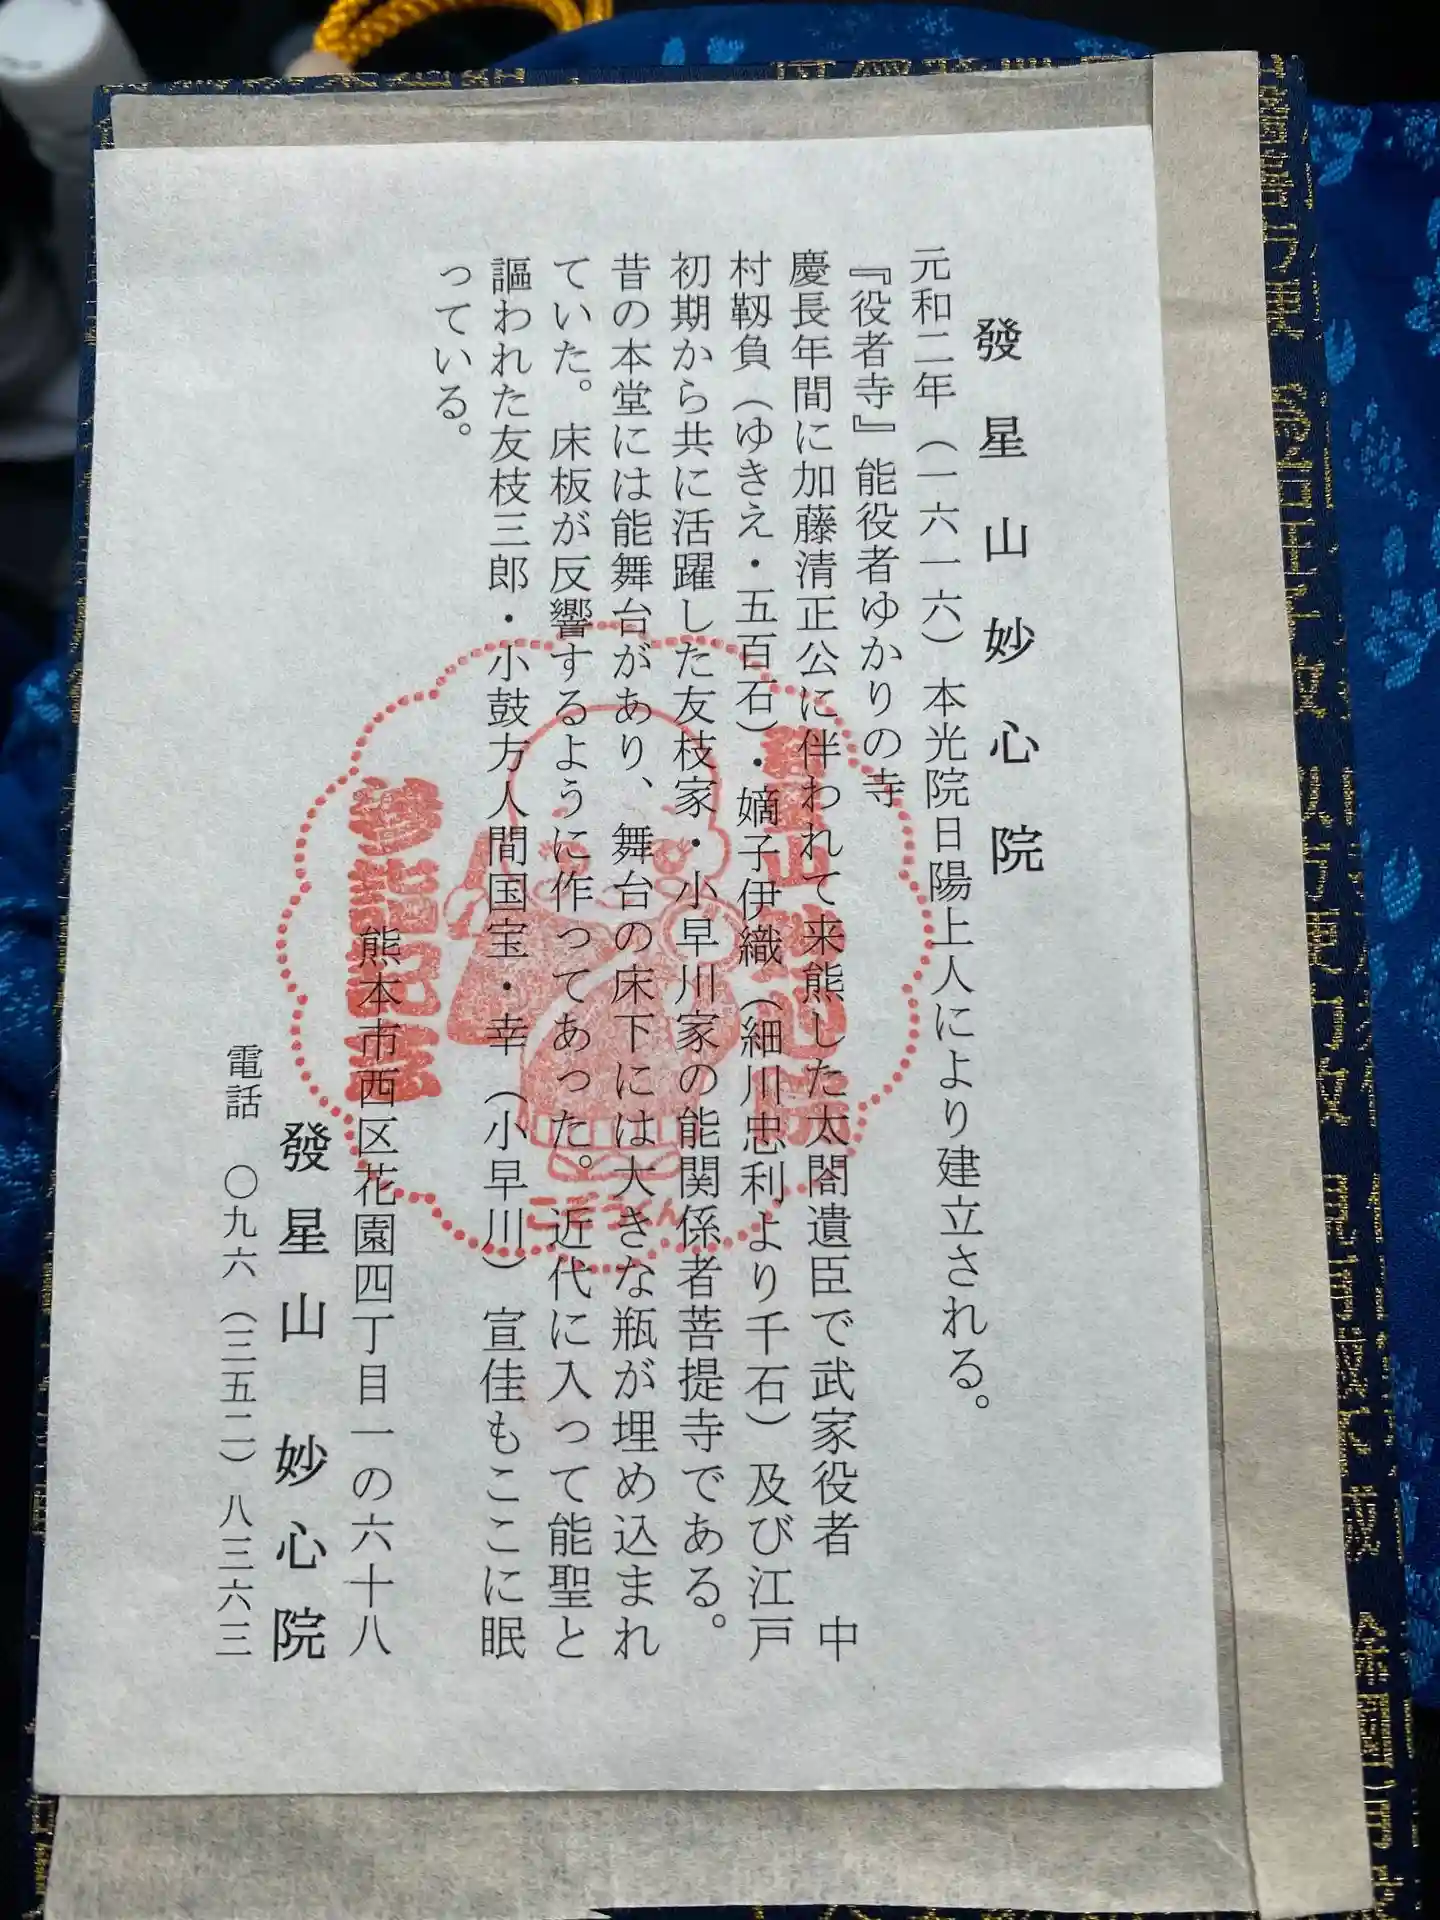 發星山妙心院
元和二年（一六一六）本光院日陽上人により建立される。
『役者寺』能役者ゆかりの寺
慶長年間に加藤清正公に伴われて来熊した太閤遺臣で武家役者　中
村靱負（ゆきえ・五百石）・嫡子伊織（細川忠利より千石）及び江戸
初期から共に活躍した友枝家・小早川家の能関係者菩提寺である。
昔の本堂には能舞台があり、舞台の床下には大きな瓶が埋め込まれ
ていた。床板が反響するように作ってあった。近代に入って能聖と
謳われた友枝三郎・小鼓方人間国宝・幸（小早川）宣佳もここに眠
っている。
熊本市西区花園四丁目一の六十八
發星山　妙心院
電話　〇九六（三五二）八三六三
參詣記念